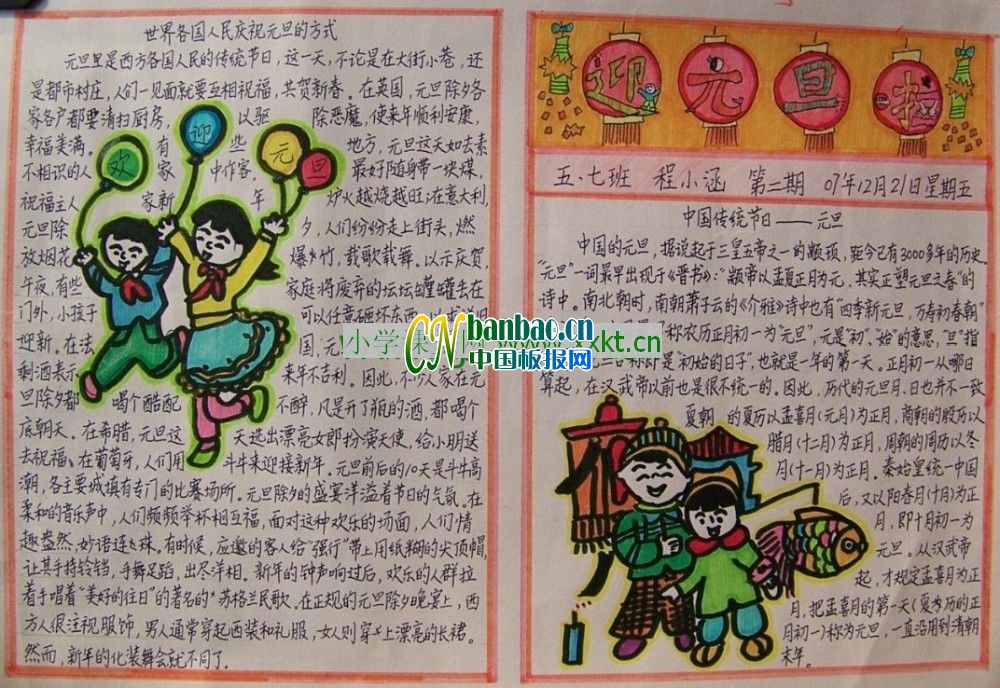 世界各国人民庆祝元旦的方式
元旦是是西方各国人民的传统节日，这一天，不论是在大街小巷，还
是都市村庄，人们一见面就要互相祝福，共贺新春。在英国，元旦除夕各
家各户都要清扫厨房，以驱除恶魔，使来年顺利安康，
幸福美满。有些地方，元旦这天如去素
不相识的人家中作客，最好随身带一块煤，
祝福主人家新年炉火越烧越旺；在意大利，
元旦除夕，人们纷纷走上街头，燃
放烟花爆竹，载歌载舞。以示庆贺
午夜，有些家庭将废弃的坛坛罐罐丢在
门外，小孩子可以任意砸坏东西
迎新。在法国，元
剩酒表示来年不吉利。因此，不少人家在元
旦除夕都喝个酩酊不醉，凡是开了瓶的酒，都喝个
底朝天。在希腊，元旦这天选出漂亮女郎扮演天使，给小朋送
去祝福。在葡萄牙，人们用斗牛来迎接新年。元旦前后的10天是斗牛高
潮，各主要城填有专门的比赛场所。元旦除夕的盛宴洋溢着节日的气氛。在
柔和的音乐声中，人们频频举杯相互福，面对这种欢乐的场面，人们情
趣盎然，妙语连珠。有时候，应邀的客人给“强行”带上用纸糊的尖顶帽，
让其手持铃铛，手舞足蹈，出尽洋相。新年的钟声响过后，欢乐的人群拉
着手唱着“美好的往日”的著名的苏格兰民歌。在正规的元旦除夕晚宴上，西
方人很注视服饰，男人通常穿起西装和礼服，女人则穿上漂亮的长裙。
然而，新年的化装舞会就不同了。
欢迎元旦
迎元旦
五·七班 程小涵 第二期 07年12月21日星期五
中国传统节日——元旦
中国的元旦，据说起于三皇五帝之一的颛顼，距今已有3000多年的历史
“元旦”一词最早出现于《晋书》：“颛帝以孟夏正月为元，其实正塑元旦之春”的
诗中。南北朝时，南朝萧子云的《介雅》诗中也有“四季新元旦，万寿初春朝”
称农历正月初一为“元旦”，元是“初”、“始”的意思，“旦”指
即是“初始的日子”，也就是一年的第一天。正月初一从哪日
算起，在汉武帝以前也是很不统一的。因此，历代的元旦月、日也并不一致
夏朝的夏历以孟喜月(元月)为正月，商朝的殷历以
腊月(十二月)为正月，周朝的周历以冬
月(十一月)为正月。秦始皇统一中国
后，又以阳春月(十月)为正
月，即十月初一为
元旦。从汉武帝
起，才规定孟喜月为正
月，把孟喜月的第一天(夏历的正
月初一)称为元旦，一直沿用到清朝
末年。
CN banbao.cn
中国板报网